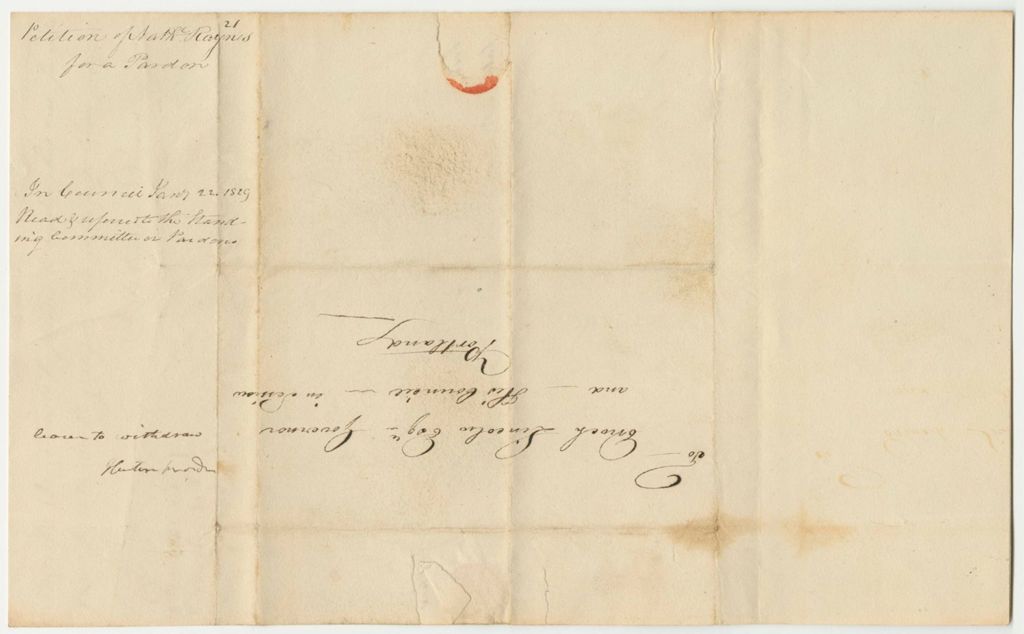 21
Petition of Nath. Raynes
for a Pardon
In Council Jany 22. 1829
Read & referred to the Stand-
ing Committee on Pardons
leave to withdraw
To
Enoch Lincoln Esqr Governor
and His Council in Session
Portland